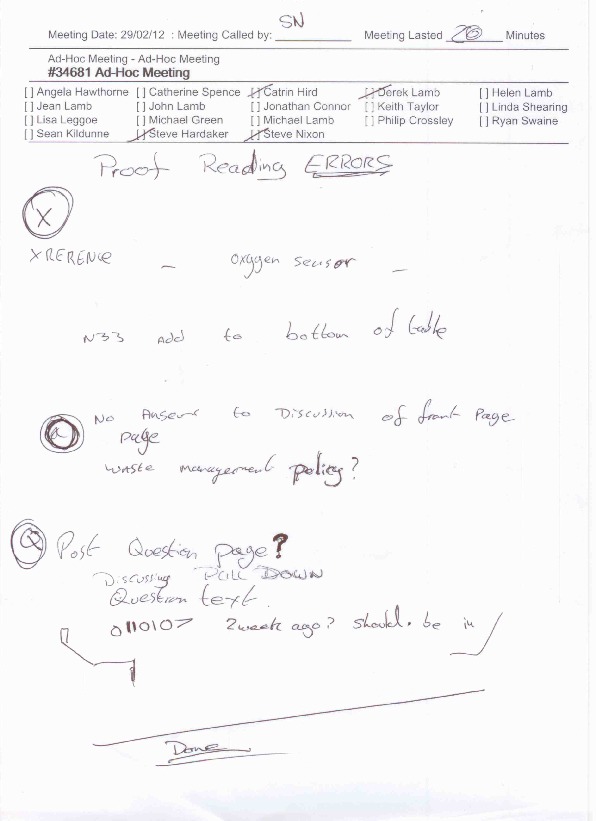 SN
Meeting Date: 29/02/12 : Meeting Called by: ___________ Meeting Lasted 20 Minutes
Ad-Hoc Meeting - Ad-Hoc Meeting
#34681 Ad-Hoc Meeting
[ ] Angela Hawthorne [ ] Catherine Spence [ ] Catrin Hird [ ] Derek Lamb [ ] Helen Lamb
[ ] Jean Lamb [ ] John Lamb [ ] Jonathan Connor [ ] Keith Taylor [ ] Linda Shearing
[ ] Lisa Leggoe [ ] Michael Green [ ] Michael Lamb [ ] Philip Crossley [ ] Ryan Swaine
[ ] Sean Kildunne [ ] Steve Hardaker [ ] Steve Nixon
Proof Reading ERRORS
X
XRERENCE - oxygen sensor -
N33 Add to bottom of table
No Answer to Discussion of front page
page
Waste management policy?
Q Post Question page?
Discussing PULL DOWN
Question text.
0110107 2week ago? should be in
Done